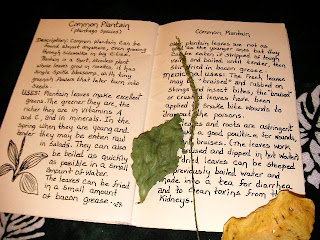 Common Plantain
(plantago species)
Description: Common plantain can be
found almost anywhere, even growing
through sidewalks in big cities.
Plantain is a short, stemless plant
whose leaves grow in rosette, it has
single spike blossoms, with tiny
greenish flowers that later turn into
seeds.
Uses: Plantain leaves make excellent
greens. The greener they are, the
richer they are in Vitamins A
and C, and in minerals. In the
spring when they are young and
tender they may be eaten raw
in salads. They can also
be boiled as quickly
as possible in a small
amount of water.
The leaves can be fried
in a small amount
of bacon grease.
Common Plantain
plantain leaves are not as
as the younger ones but they
can be eaten if stripped of tough
veins and boiled until tender, then
fried in bacon grease.
Medicinal uses: The fresh leaves
may be "bruised" and rubbed on
stings and insect bites, the "bruised"
leaves have been
applied to snake bite wounds to
draw out the poisons.
leaves and roots are astringent
a good poultice for wounds,
bruises. (The leaves work
bruised and dipped in hot water)
dried leaves can be steeped
previously boiled water and
made into a tea for diarrhea
and to clean toxins from the
Kidneys.